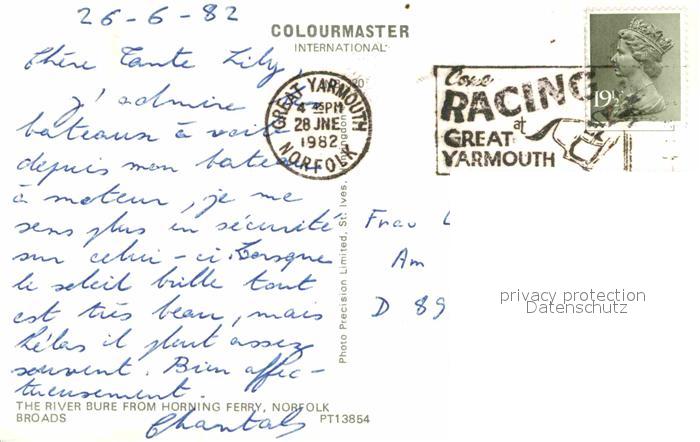 26-6-82
COLOURMASTER
INTERNATIONAL
Chère Tante Lily,
j'admire les
bateaux à voile
depuis mon bateau
à moteur, je me
sens plus en sécurité
sur celui-ci. Lorsque
le soleil brille tout
est très beau, mais
hélas il pleut assez
souvent. Bien affec-
tueusement.
Chantal
THE RIVER BURE FROM HORNING FERRY, NORFOLK
BROADS
PT13854
Photo Precision Limited, St. Ives,
GREAT YARMOUTH
4 45PM
28 JNE
1982
NORFOLK
Come
RACING
at
GREAT
YARMOUTH
19½
Frau L
Am
D 89
privacy protection
Datenschutz